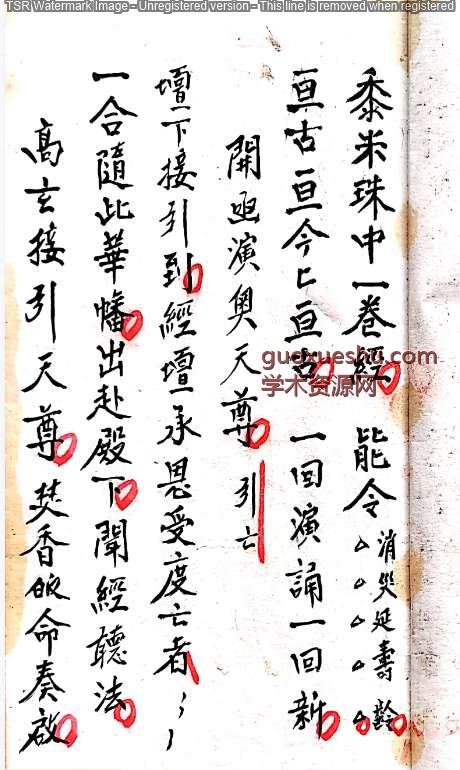 TSR Watermark Image - Unregistered version - This line is removed when registered
黍米珠中一卷經 能令消災延壽齡
亘古亘今亡亘古 一回演誦一回新
開函演奧天尊 引亡
壇下接引到經壇承恩受度亡者
一合隨此華幡出赴殿下聞經聽法
高玄接引天尊焚香皈命奏啟
guoxueshu.com
学术资源网